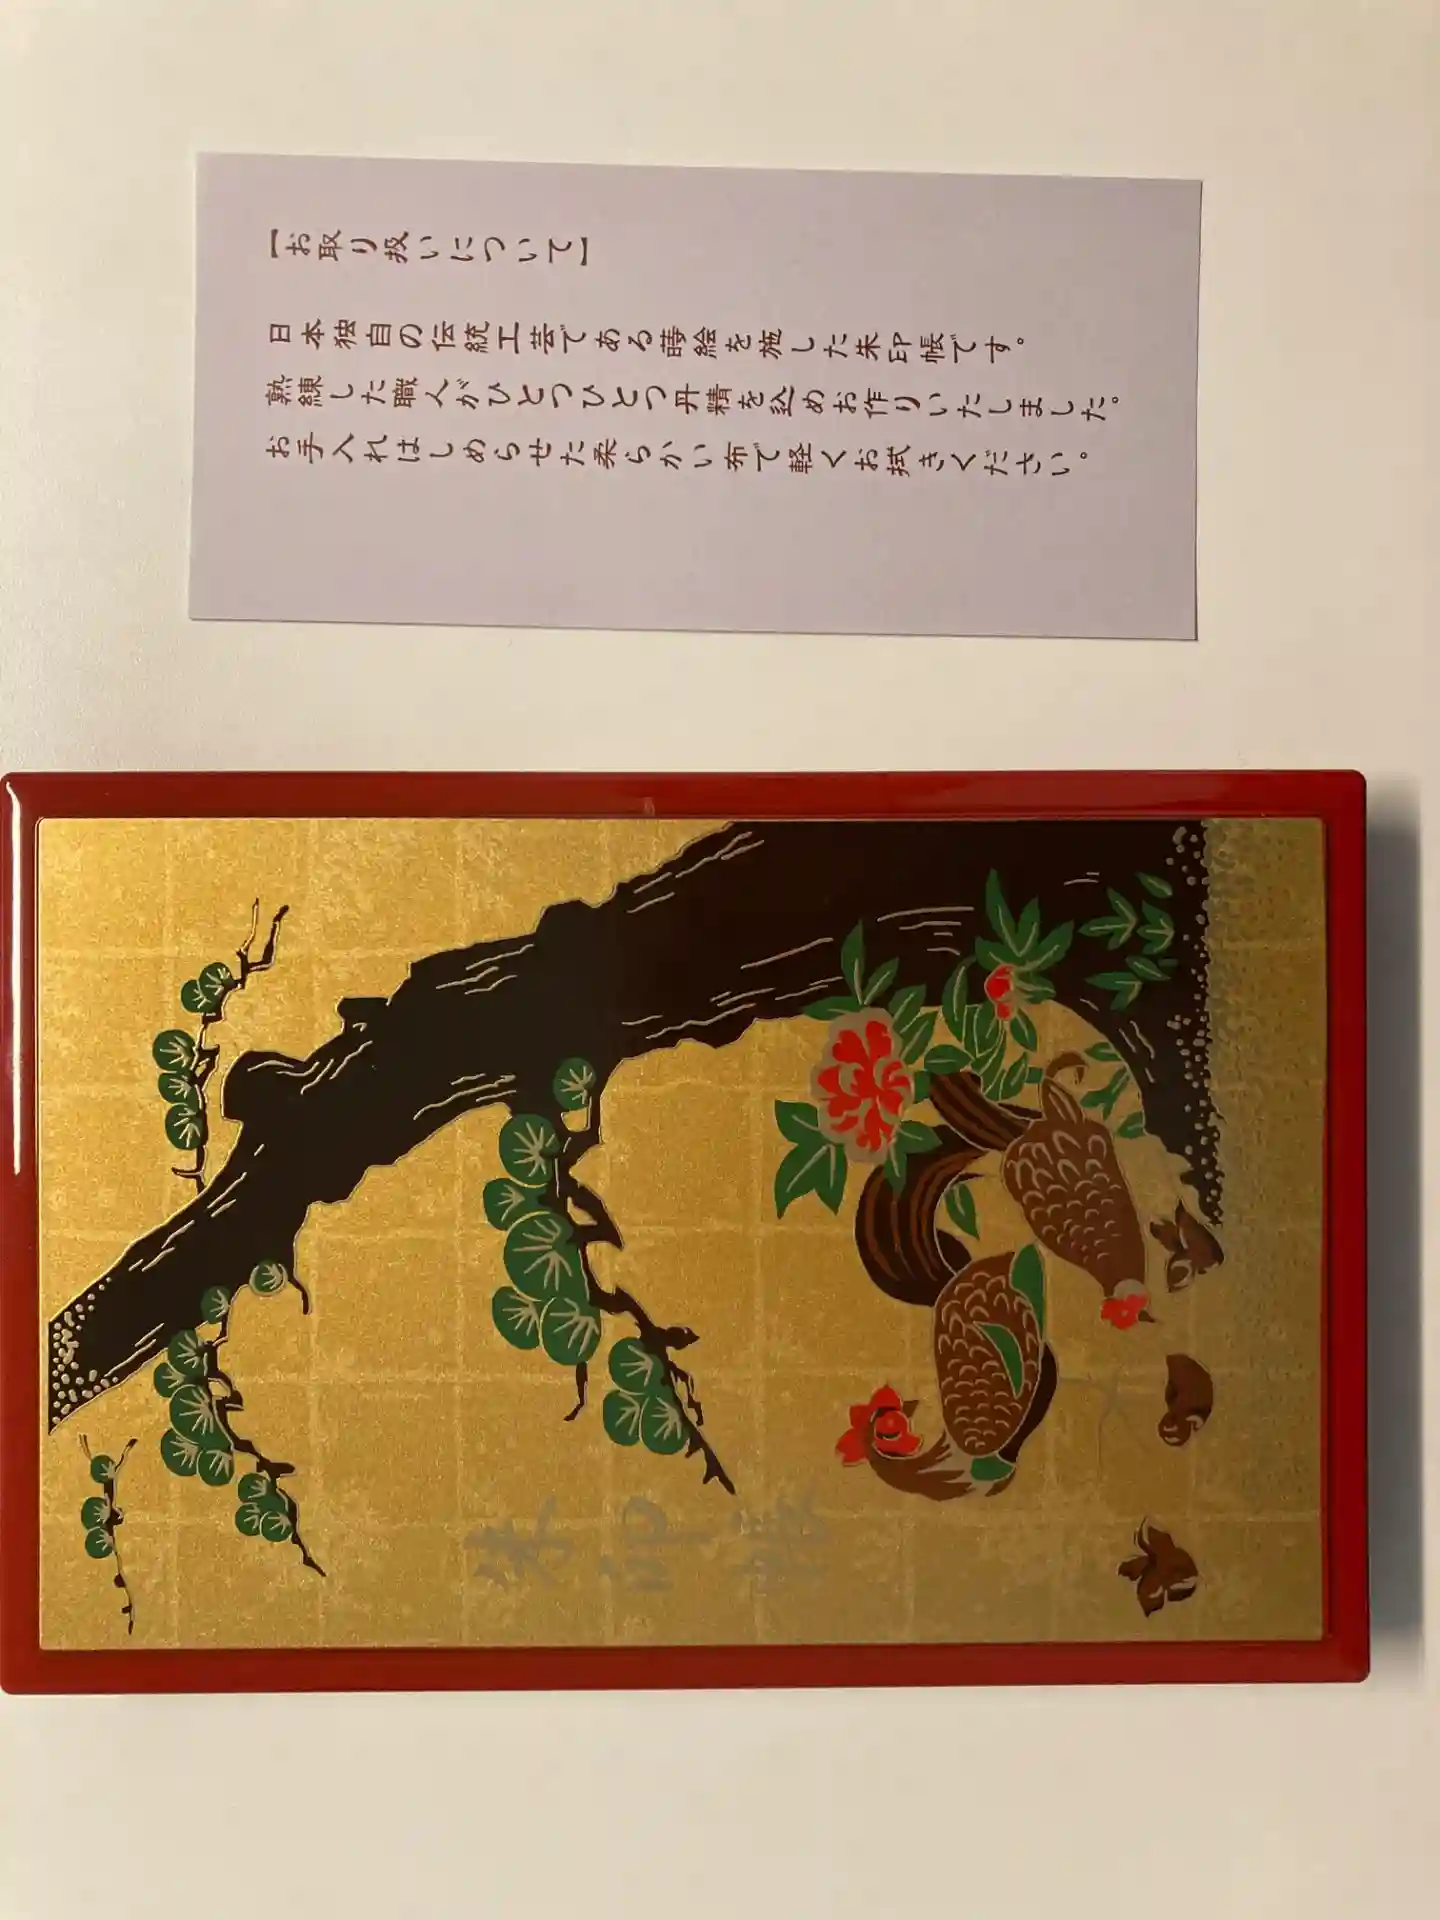 【お取り扱いについて】
日本独自の伝統工芸である蒔絵を施した朱印帳です。
熟練した職人がひとつひとつ丹精を込めお作りいたしました。
お手入れはしめらせた柔らかい布で軽くお拭きください。
朱印帳